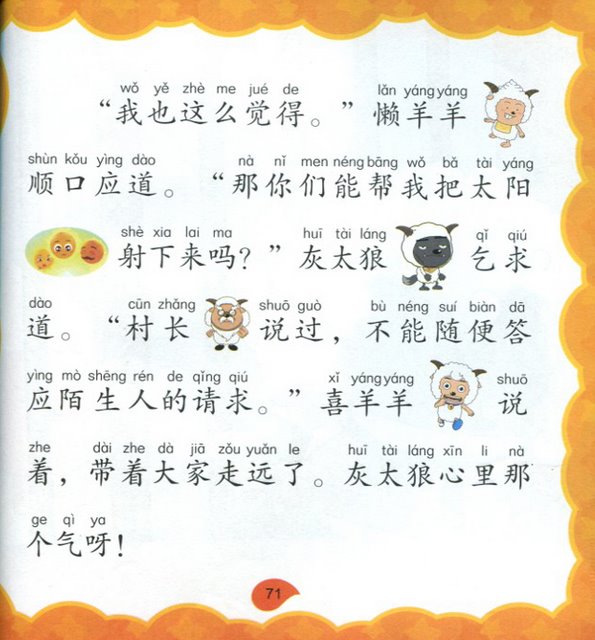 wǒ yě zhè me jué de lǎn yáng yáng
“我也这么觉得。”懒羊羊
shùn kǒu yìng dào nà nǐ men néng bāng wǒ bǎ tài yáng
顺口应道。“那你们能帮我把太阳
shè xia lai ma huī tài láng qǐ qiú
射下来吗？”灰太狼乞求
dào cūn zhǎng shuō guò bù néng suí biàn dā
道。“村长说过，不能随便答
yìng mò shēng rén de qǐng qiú xǐ yáng yáng shuō
应陌生人的请求。”喜羊羊说
zhe dài zhe dà jiā zǒu yuǎn le huī tài láng xīn li nà
着，带着大家走远了。灰太狼心里那
ge qì ya
个气呀！
71